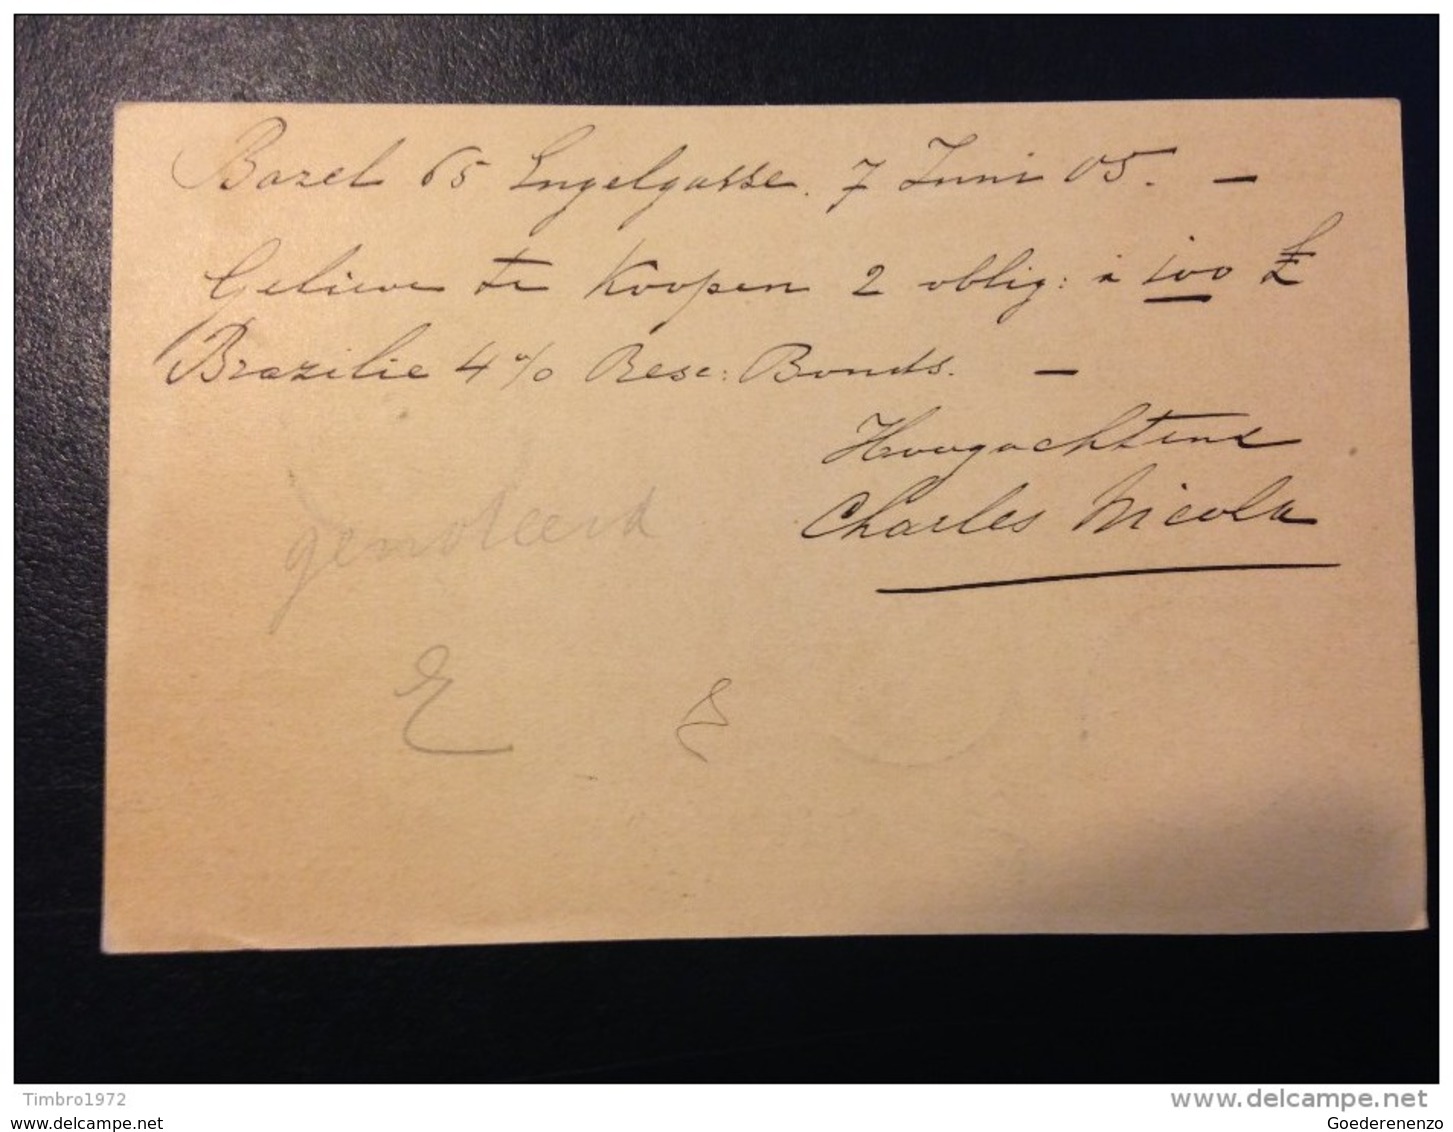 Bazel 65 Engelgasse. 7 Juni 05. —
Gelieve te Koopen 2 oblig: à 100 £
Brazilie 4% Resc: Bonds. —
Hoogachtend
Charles Nicola
genoteerd
Timbro1972
www.delcampe.net
www.delcampe.net
Goederenenzo